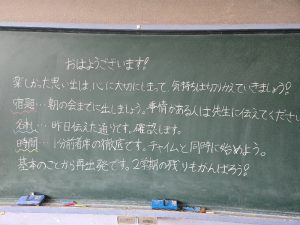 おはようございます!
楽しかった思い出は心に大切にしまって気持ちは切りかえていきましょう?
宿題…朝の会までに出しましょう。事情がある人は先生に伝えてください
…昨日伝えた通りです。確認します。
時間…1分前着席の徹底です。チャイムと同時に始めよう。
基本のことから再出発です。2学期の残りもがんばろう?